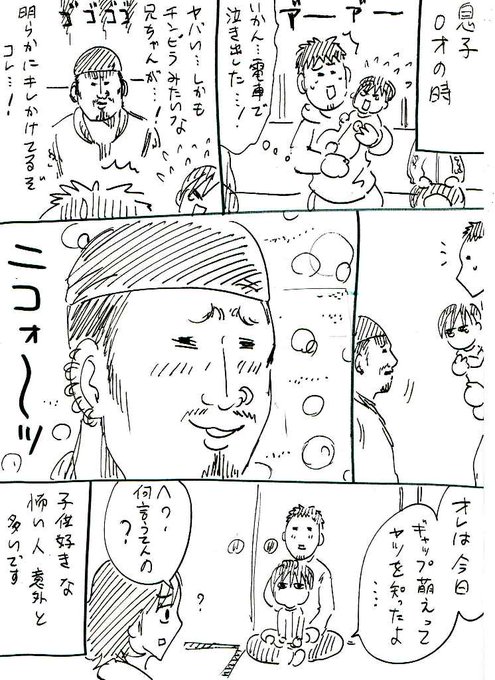 息子
0才の時
アー アー
いかん…電車で
泣き出した…!
ゴゴゴゴ
ヤバい…しかも
チンピラみたいな
兄ちゃんが…!
明らかにキレかけてるぞ
コレ…!
ニコォ〜ッ
オレは今日
ギャップ萌えって
ヤツを知ったよ
……
へ?
何言ってんの
?
?
子供好きな
怖い人 意外と
多いです